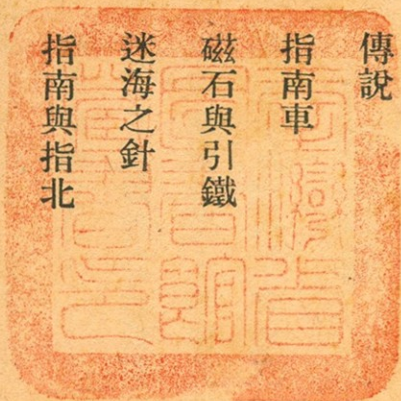 傳說
指南車
磁石與引鐵
迷海之針
指南與指北